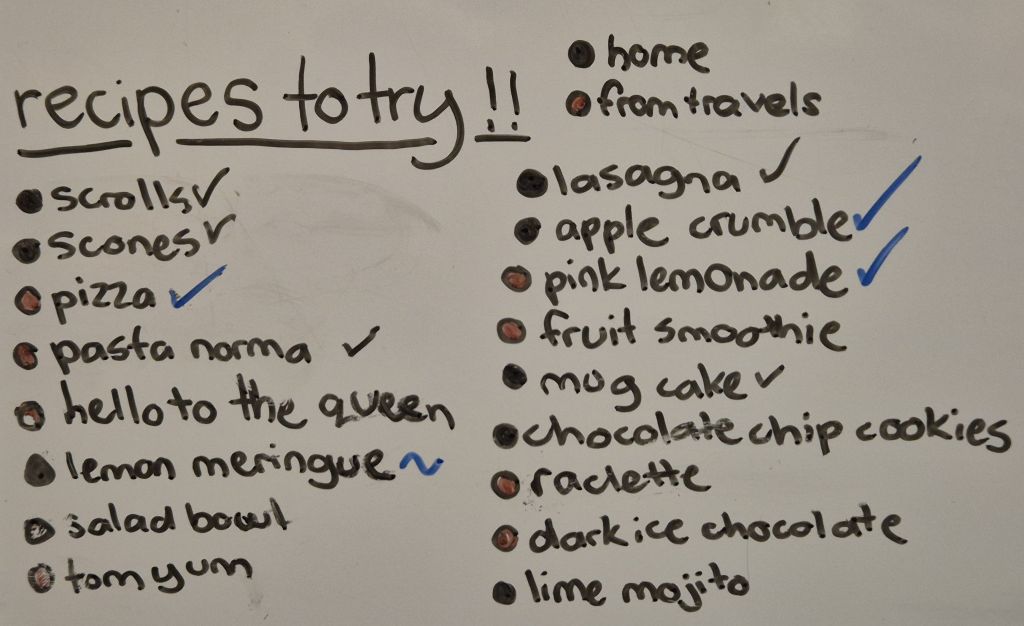 recipes to try !!
• home
• from travels
• scrolls ✓
• scones ✓
• pizza ✓
• pasta norma ✓
• hello to the queen
• lemon meringue ~
• salad bowl
• tom yum
• lasagna ✓
• apple crumble ✓
• pink lemonade ✓
• fruit smoothie
• mug cake ✓
• chocolate chip cookies
• raclette
• dark ice chocolate
• lime mojito